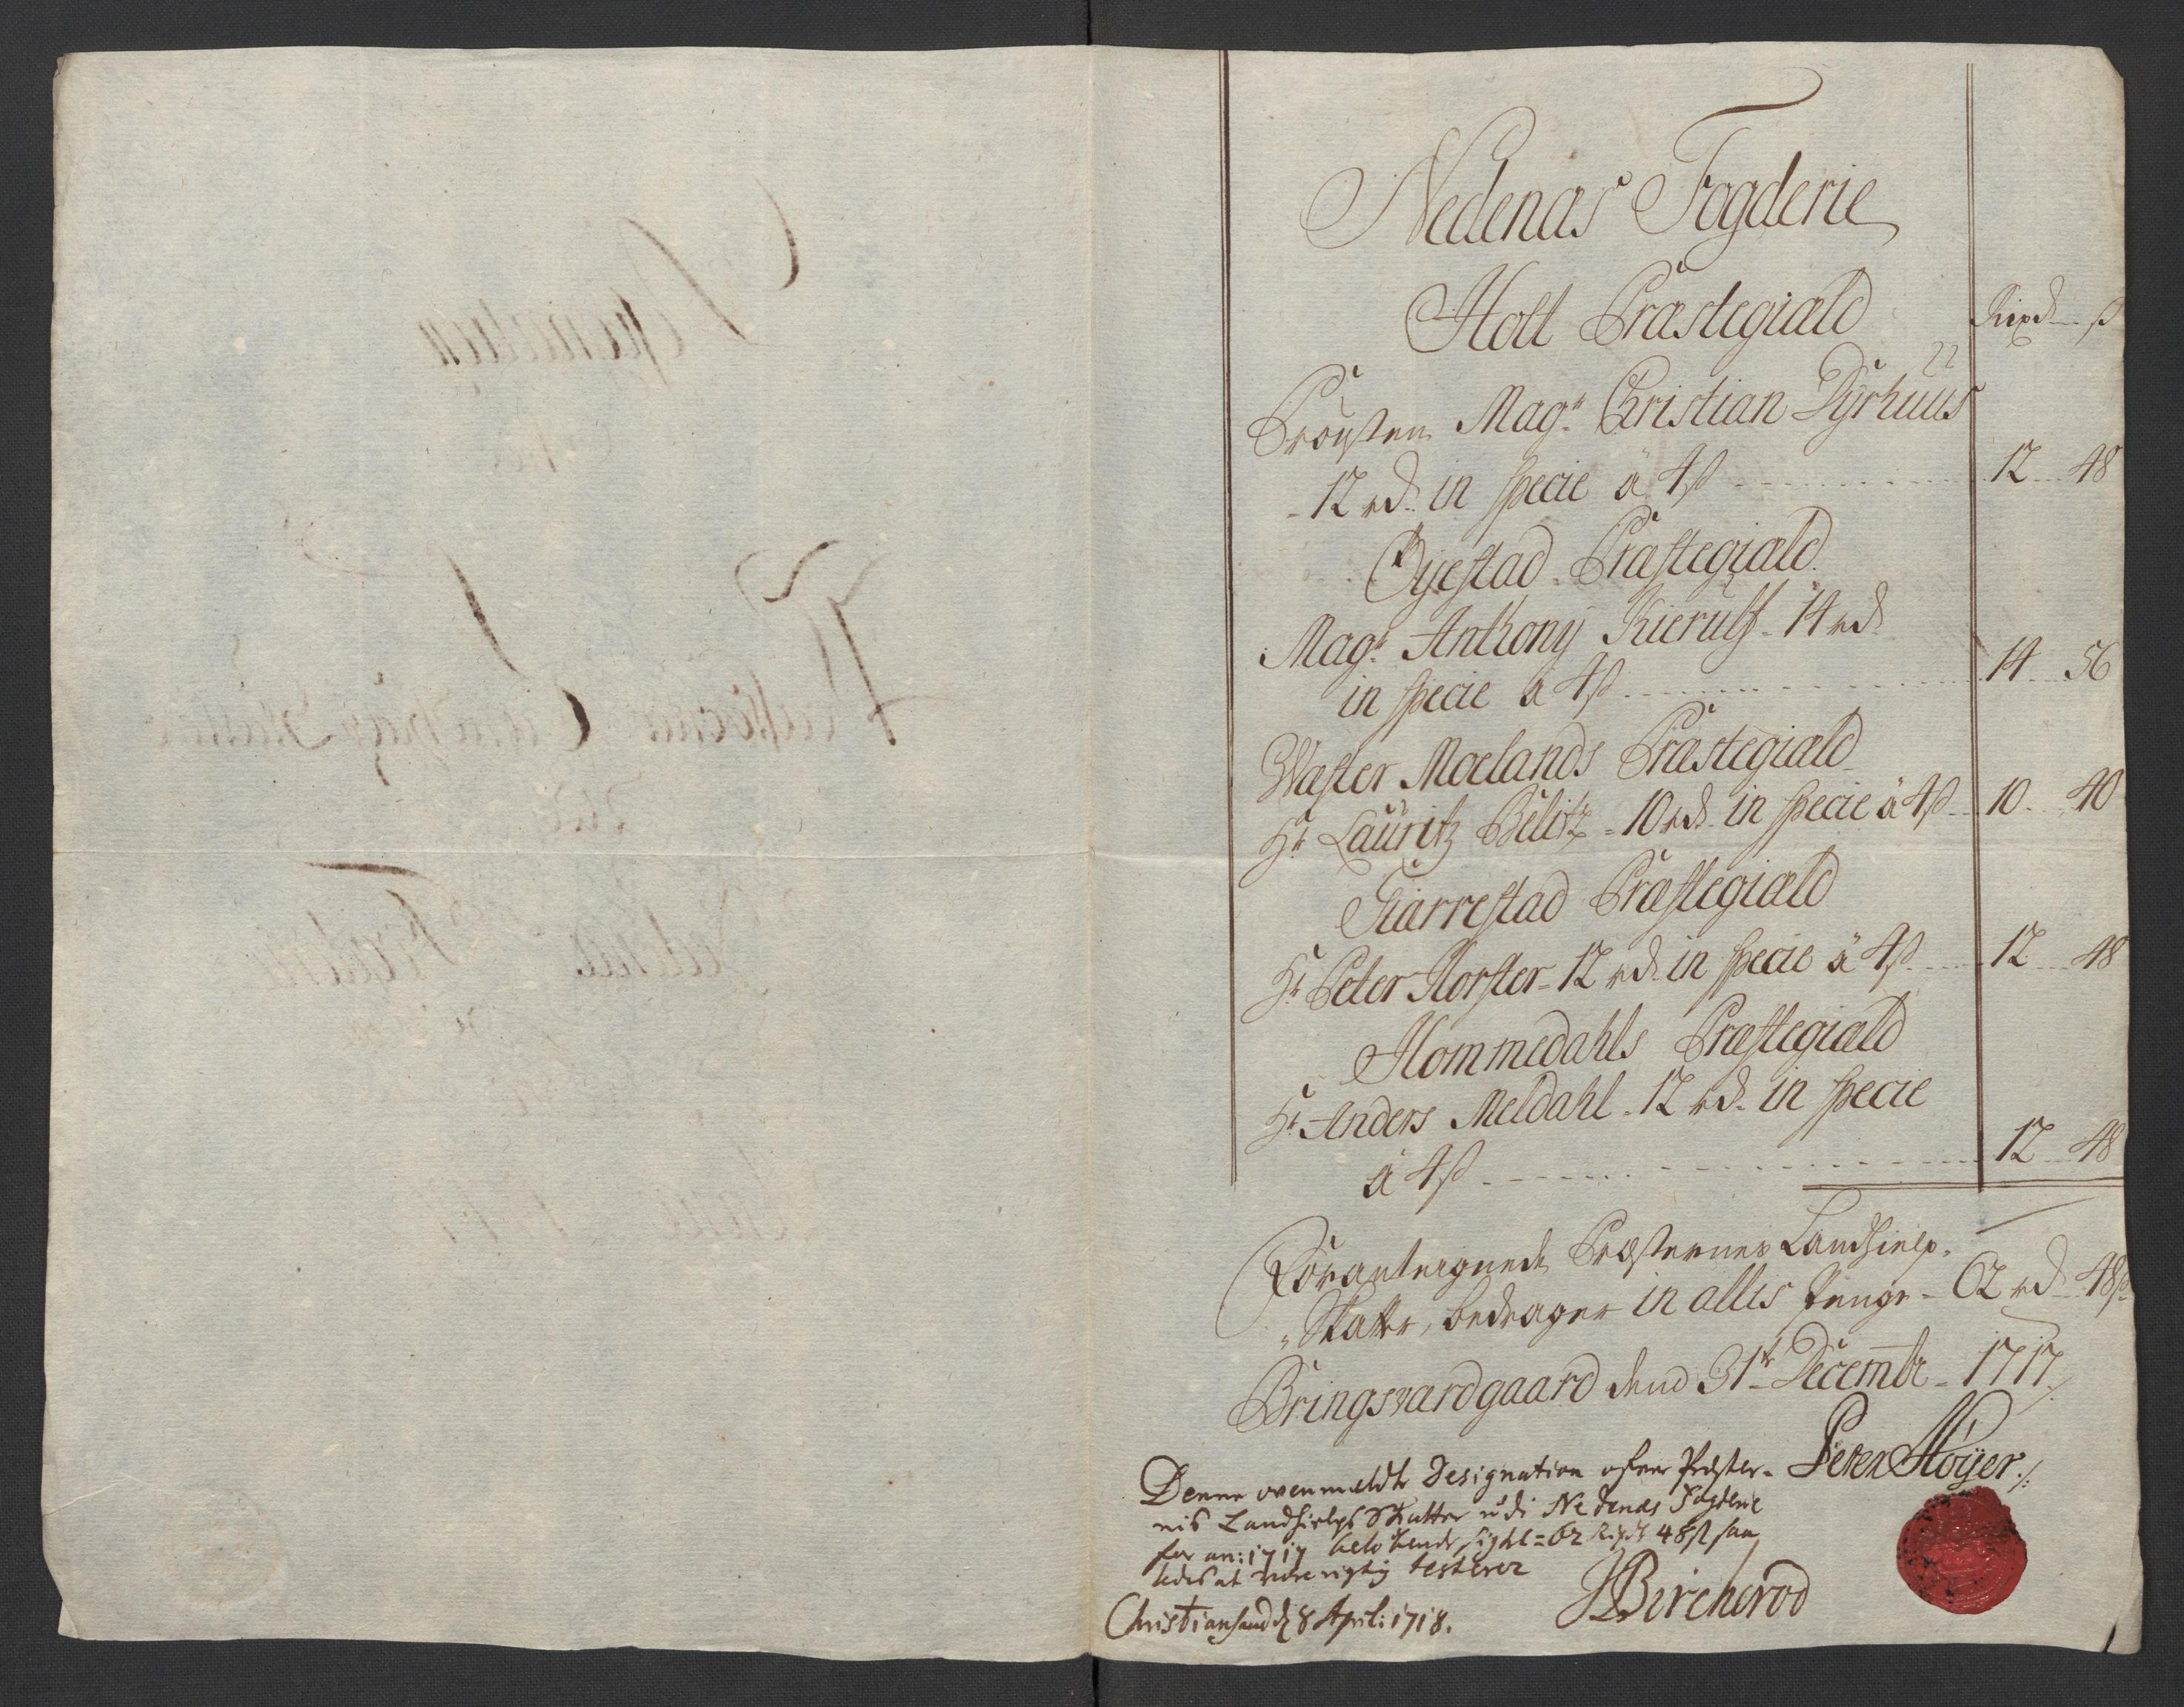 Nedenæs Fogderie
Holt Præstegiæld
Rixd ß
Prousten Magr. Christian Dyrhuus
12 rd. in specie á 4ß 12 48
Oyestad Præstegiæld.
Magr. Anthony Kierulf 14 rd
in specie á 4ß 14 56
Wæster Moelands Præstegiæld
Hr. Lauritz Bilitz 10 rd. in specie á 4ß 10 40
Giærrestad Præstegiæld
Hr. Peter Horster 12 rd. in specie á 4ß 12 48
Hommedahls Præstegiæld
Hr. Anders Meldahl 12 rd. in specie
á 4ß 12 48
Præsternes Landhielp
Skatter, bedrager in alles Penge 62 rd 48ß
Bringsværdgaard dend 31te Decembr 1717
Peter Höyer
Denne ovenmeldte Designation ofver Præster-
nis Landhielps Skatter udi Nedenæs Fogderie
for an: 1717 belöbende sig til = 62 Rixd 48ß saa
ledes at være rigtig testerer
Christiansand d 8 April: 1718.
JBircherod